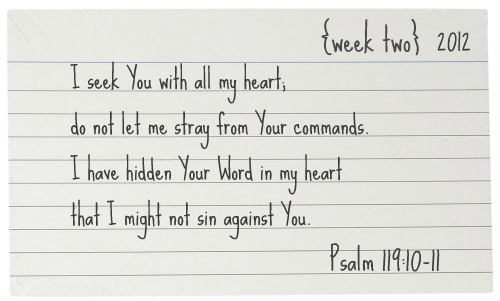 {week two} 2012
I seek You with all my heart;
do not let me stray from Your commands.
I have hidden Your Word in my heart
that I might not sin against You.
Psalm 119:10-11